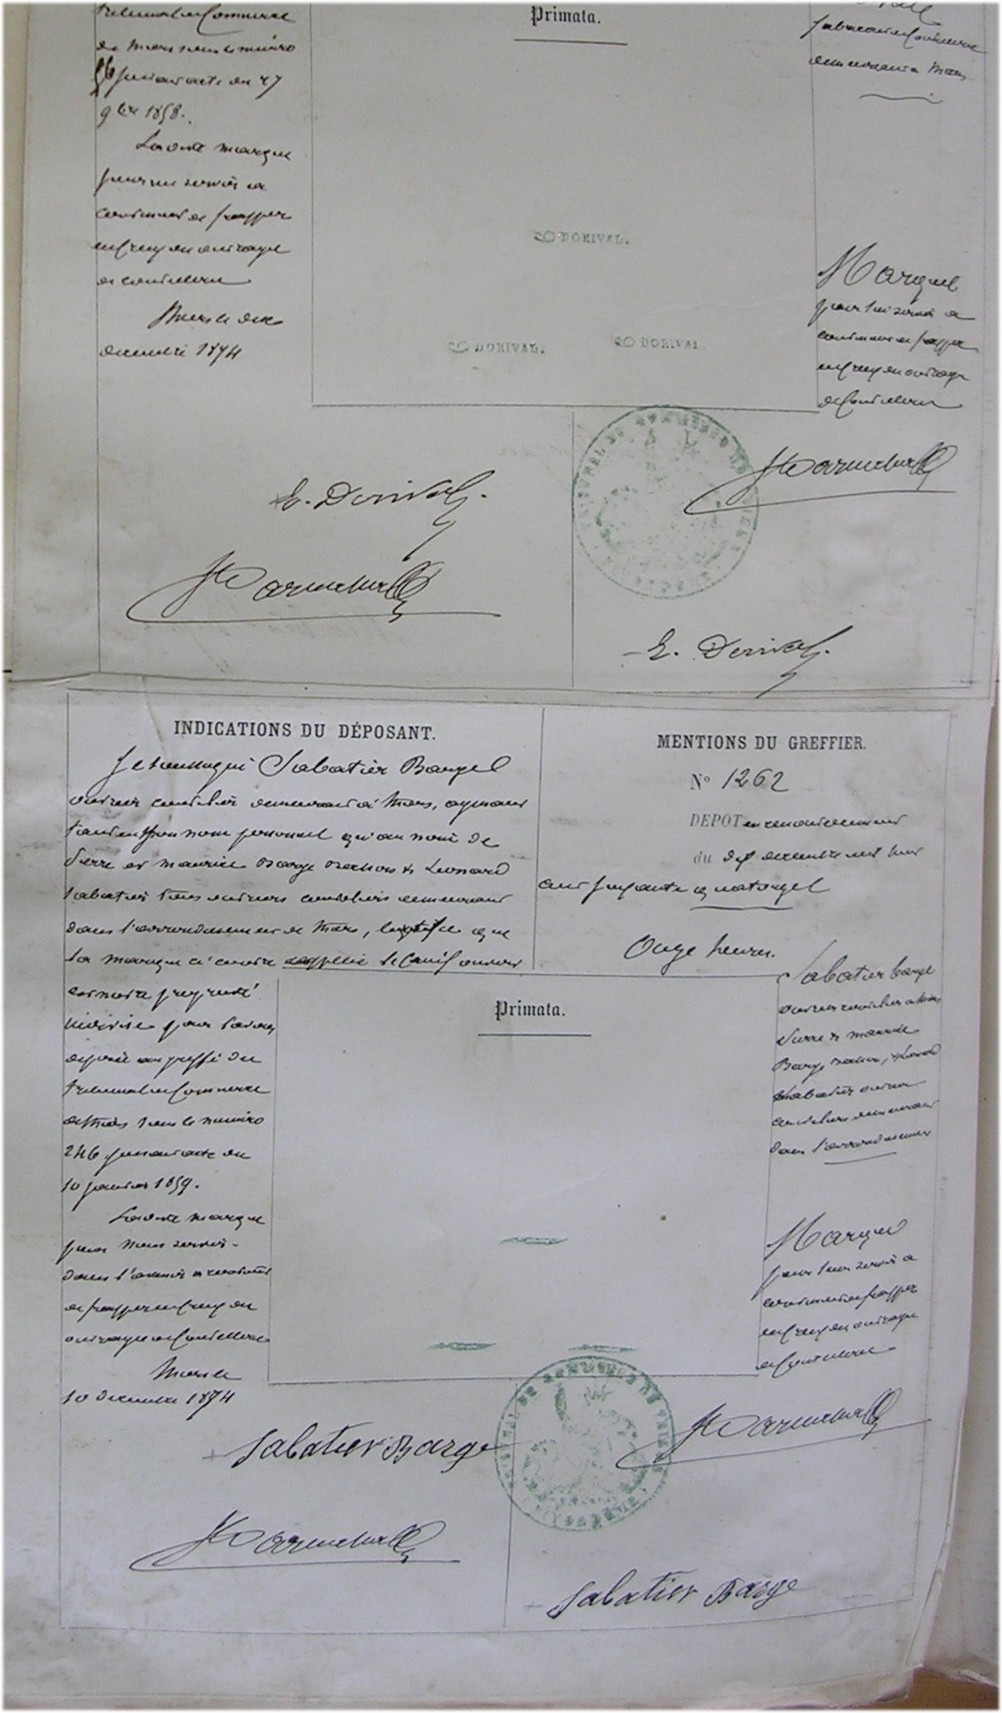 Tribunal de Commerce
de Thiers sous le numéro
56 suivant acte du 27
9bre 1858.
Ladite marque
pour me servir à
continuer de frapper
en creux en ouvrage
de coutellerie
Thiers le dix
décembre 1874
Primata.
DORIVAL.
DORIVAL.
DORIVAL
fabricant de Coutellerie
demeurant à Thiers
Marque
pour lui servir à
continuer de frapper
en creux en ouvrage
de Coutellerie
E. Dorival.
E. Dorival.
INDICATIONS DU DÉPOSANT.
Je soussigné Sabatier Barge
ouvrier coutelier demeurant à Thiers, agissant
tant en mon nom personnel qu'au nom de
Pierre et Maurice Barge Bechon & Léonard
Sabatier tous ouvriers couteliers demeurant
dans l'arrondissement de Thiers, que
la marque ci contre appelée le Canif ouvert
est notre propriété
indivise pour l'avoir
déposée au greffe du
Tribunal de Commerce
de Thiers sous le numéro
246 suivant acte du
10 janvier 1859.
Ladite marque
pour nous servir
dans l'avenir à continuer
de frapper en creux en
ouvrage de Coutellerie
Thiers le
10 décembre 1874
MENTIONS DU GREFFIER.
N° 1262
DEPOT en renouvellement
du dix décembre mil huit
cent soixante & quatorze
Onze heures.
Primata.
Sabatier barge
ouvrier coutelier à Thiers
Pierre & Maurice
Barge Bechon, & Léonard
Sabatier ouvriers
couteliers demeurant
dans l'arrondissement
Marque
pour leur servir à
continuer de frapper
en creux en ouvrage
de Coutellerie
Sabatier Barge
Sabatier Barge